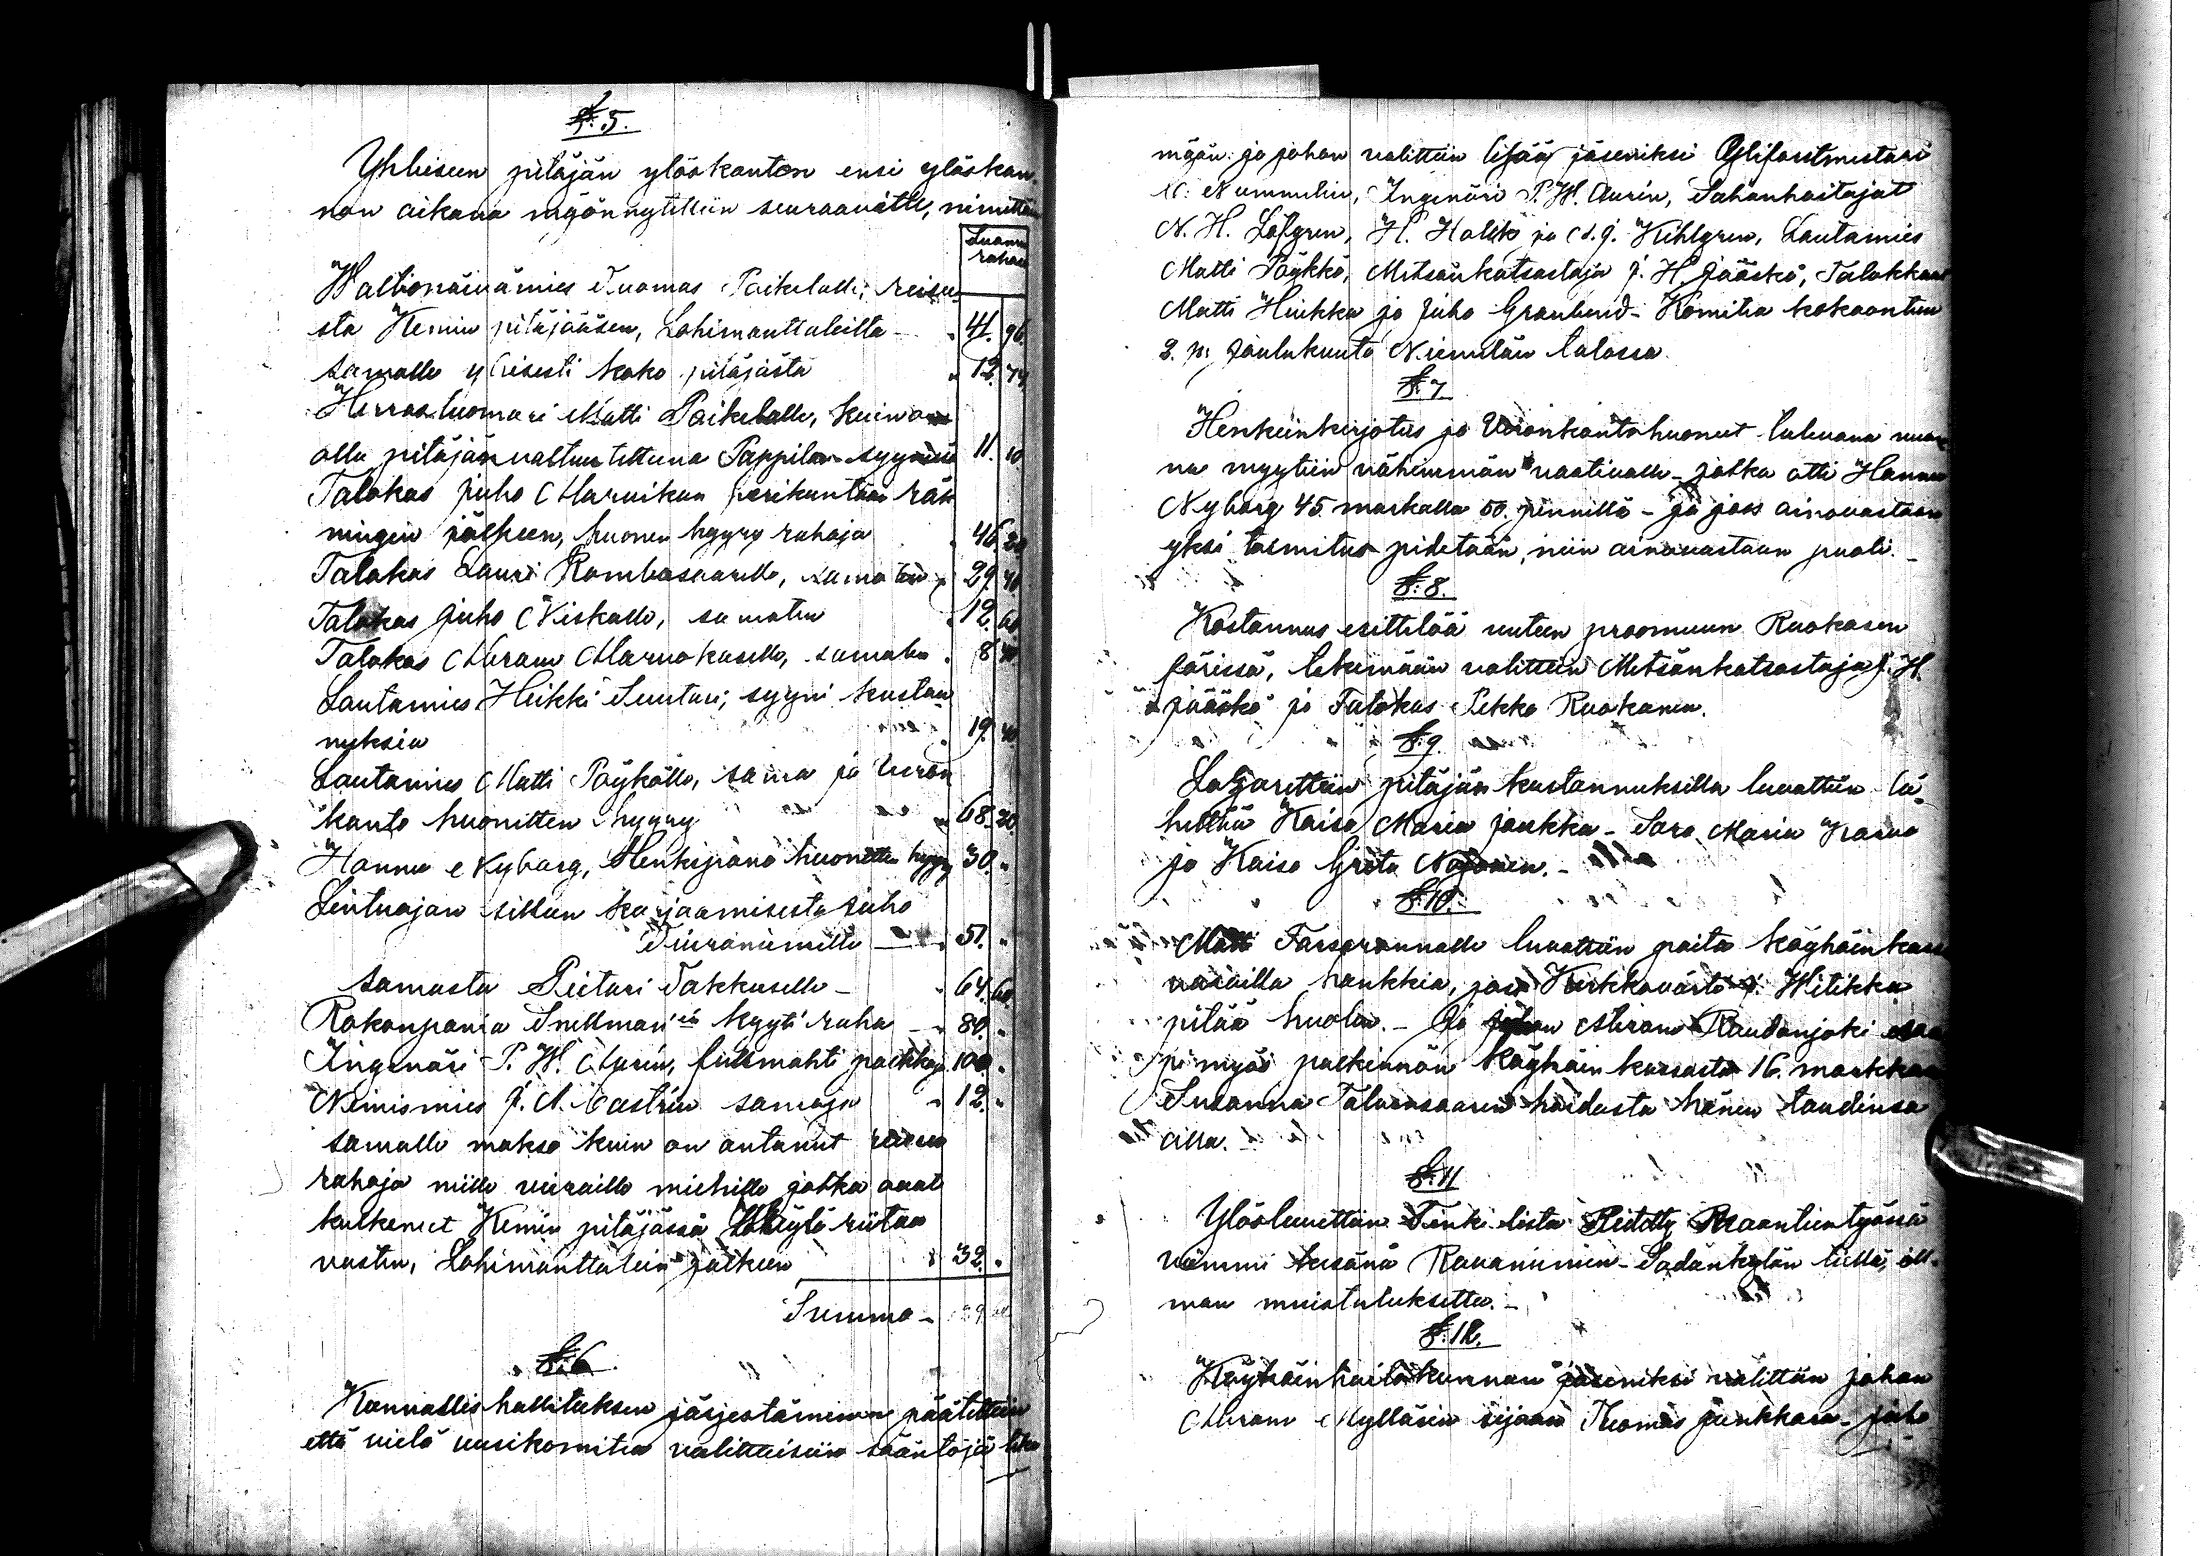 §. 5.
Yhteiseen pitäjän ylöskanton ensi ylöskan-
non aikana myönnytettiin seuraaville, nimittäin
Suomen
rahaa
Waltionäivämies Tuomas Paikalalle, reisu-
sta Kemin pitäjääsen, Lohimanttaleilta - 41. 96.
samalle yhisesti koko pitäjästä " 12 74
Herrastuomari Matti Paikalalle, kuin on
ollu pitäjän valtuutettuna Pappilan syynisä 11. 10
Talokas Juho Marnikan perikuntaan räk-
ningin jälkeen, huonen hyyry rahaja 46 20
Talokas Lauri Rambasaarelle, samaten 29. 40
Talokas Juho Niskalle, samaten 12. 60
Talokas Abram Maruokaselle, samaten 8 40
Lautamies Heikki Suutari, syyni kustan-
nuksia 19. 40.
Lautamies Matti Pöykölle, sama ja Veron
kanto huonitten hyyry 68. 20
Hannu Nyborg, Henkipano huonitten hyyry 30. "
Lintuojan sillan korjaamisesta Juho
Tieraniemelle 51. "
samasta Pietari Takkuselle - 64. 60
Rokonpania Snellman'in kyyti raha - 80. "
Ingenöri P. W. Aurin, fullmahti palkkaja 100. "
Nimismies J. A. Castrén samaja " 12. "
samalle makso kuin on antanut
rahaja niille vieraille miehille jotka ovat
kulkenet Kemin pitäjässä riitaa
vasten, Lohimanttalein jälkeen 32. "
Summa -
§. 6.
Kunnallishallituksen järjestäminen päätettiin
että vielä uusikomitea valittaisiin sääntöjä teke-
mään: ja johon valittiin lisää jäseniksi
N: Nummelin, Ingenöri P. W. Aurin, Sahanhoitajat
N. H. Löfgren, H. Holck ja A. J. Kihlgren, Lautamies
Matti Pöykkö, Metsänkatsastaja J. H. Jääskö, Talokkaat
Matti Hiukka ja Juho Granlund - Komitea kokoontuu
2. p: Joulukuuta Niemelän talossa.
§. 7
Henkiinkirjotus ja Veronkantohuonet tulevana vuon-
na myytiin vähimmän vaativalle - jotka otti Hannu
Nyborg 45. markalla 50. pennillä - ja joss ainovastaan
yksi toimitus pidetään, niin ainovastaan puoli. -
§. 8.
Kostannus esittelöä uuteen proomuun Ruokasen
färissä, tekemään valittiin Metsänkatsastaja J. H.
Jääskö ja Talokas Pekka Ruokanen.
§. 9.
Lazarettiin pitäjän kustannuksilla luvattiin lä-
hettää Kaisa Maria Jankka - Sara Maria Karvo
ja Kaisa Greta Nojonen. -
§. 10.
Matti Farsorannalle luvattiin paita köyhäin kassan
varoilla hankkia, josta Kirkkovärti J. Hietikka
pitää huolen. - Ja Abram Raudanjoki
myös palkinnon köyhäin kassasta 16. markkaa
Susanna Talvensaaren hoidosta hänen taudinsa
alla. -
§. 11
Ylösluvettiin Tenki lista Pidetty Maantientyössä
viimmi kesänä Rovaniemen - Sodankylän tiellä, ill-
man muistutuksetta. -
§. 12.
Köyhäinhoitokunnan jäseniksi valittiin Johan
Abram Mylläsen sijaan Thomas Junkkara - Juho